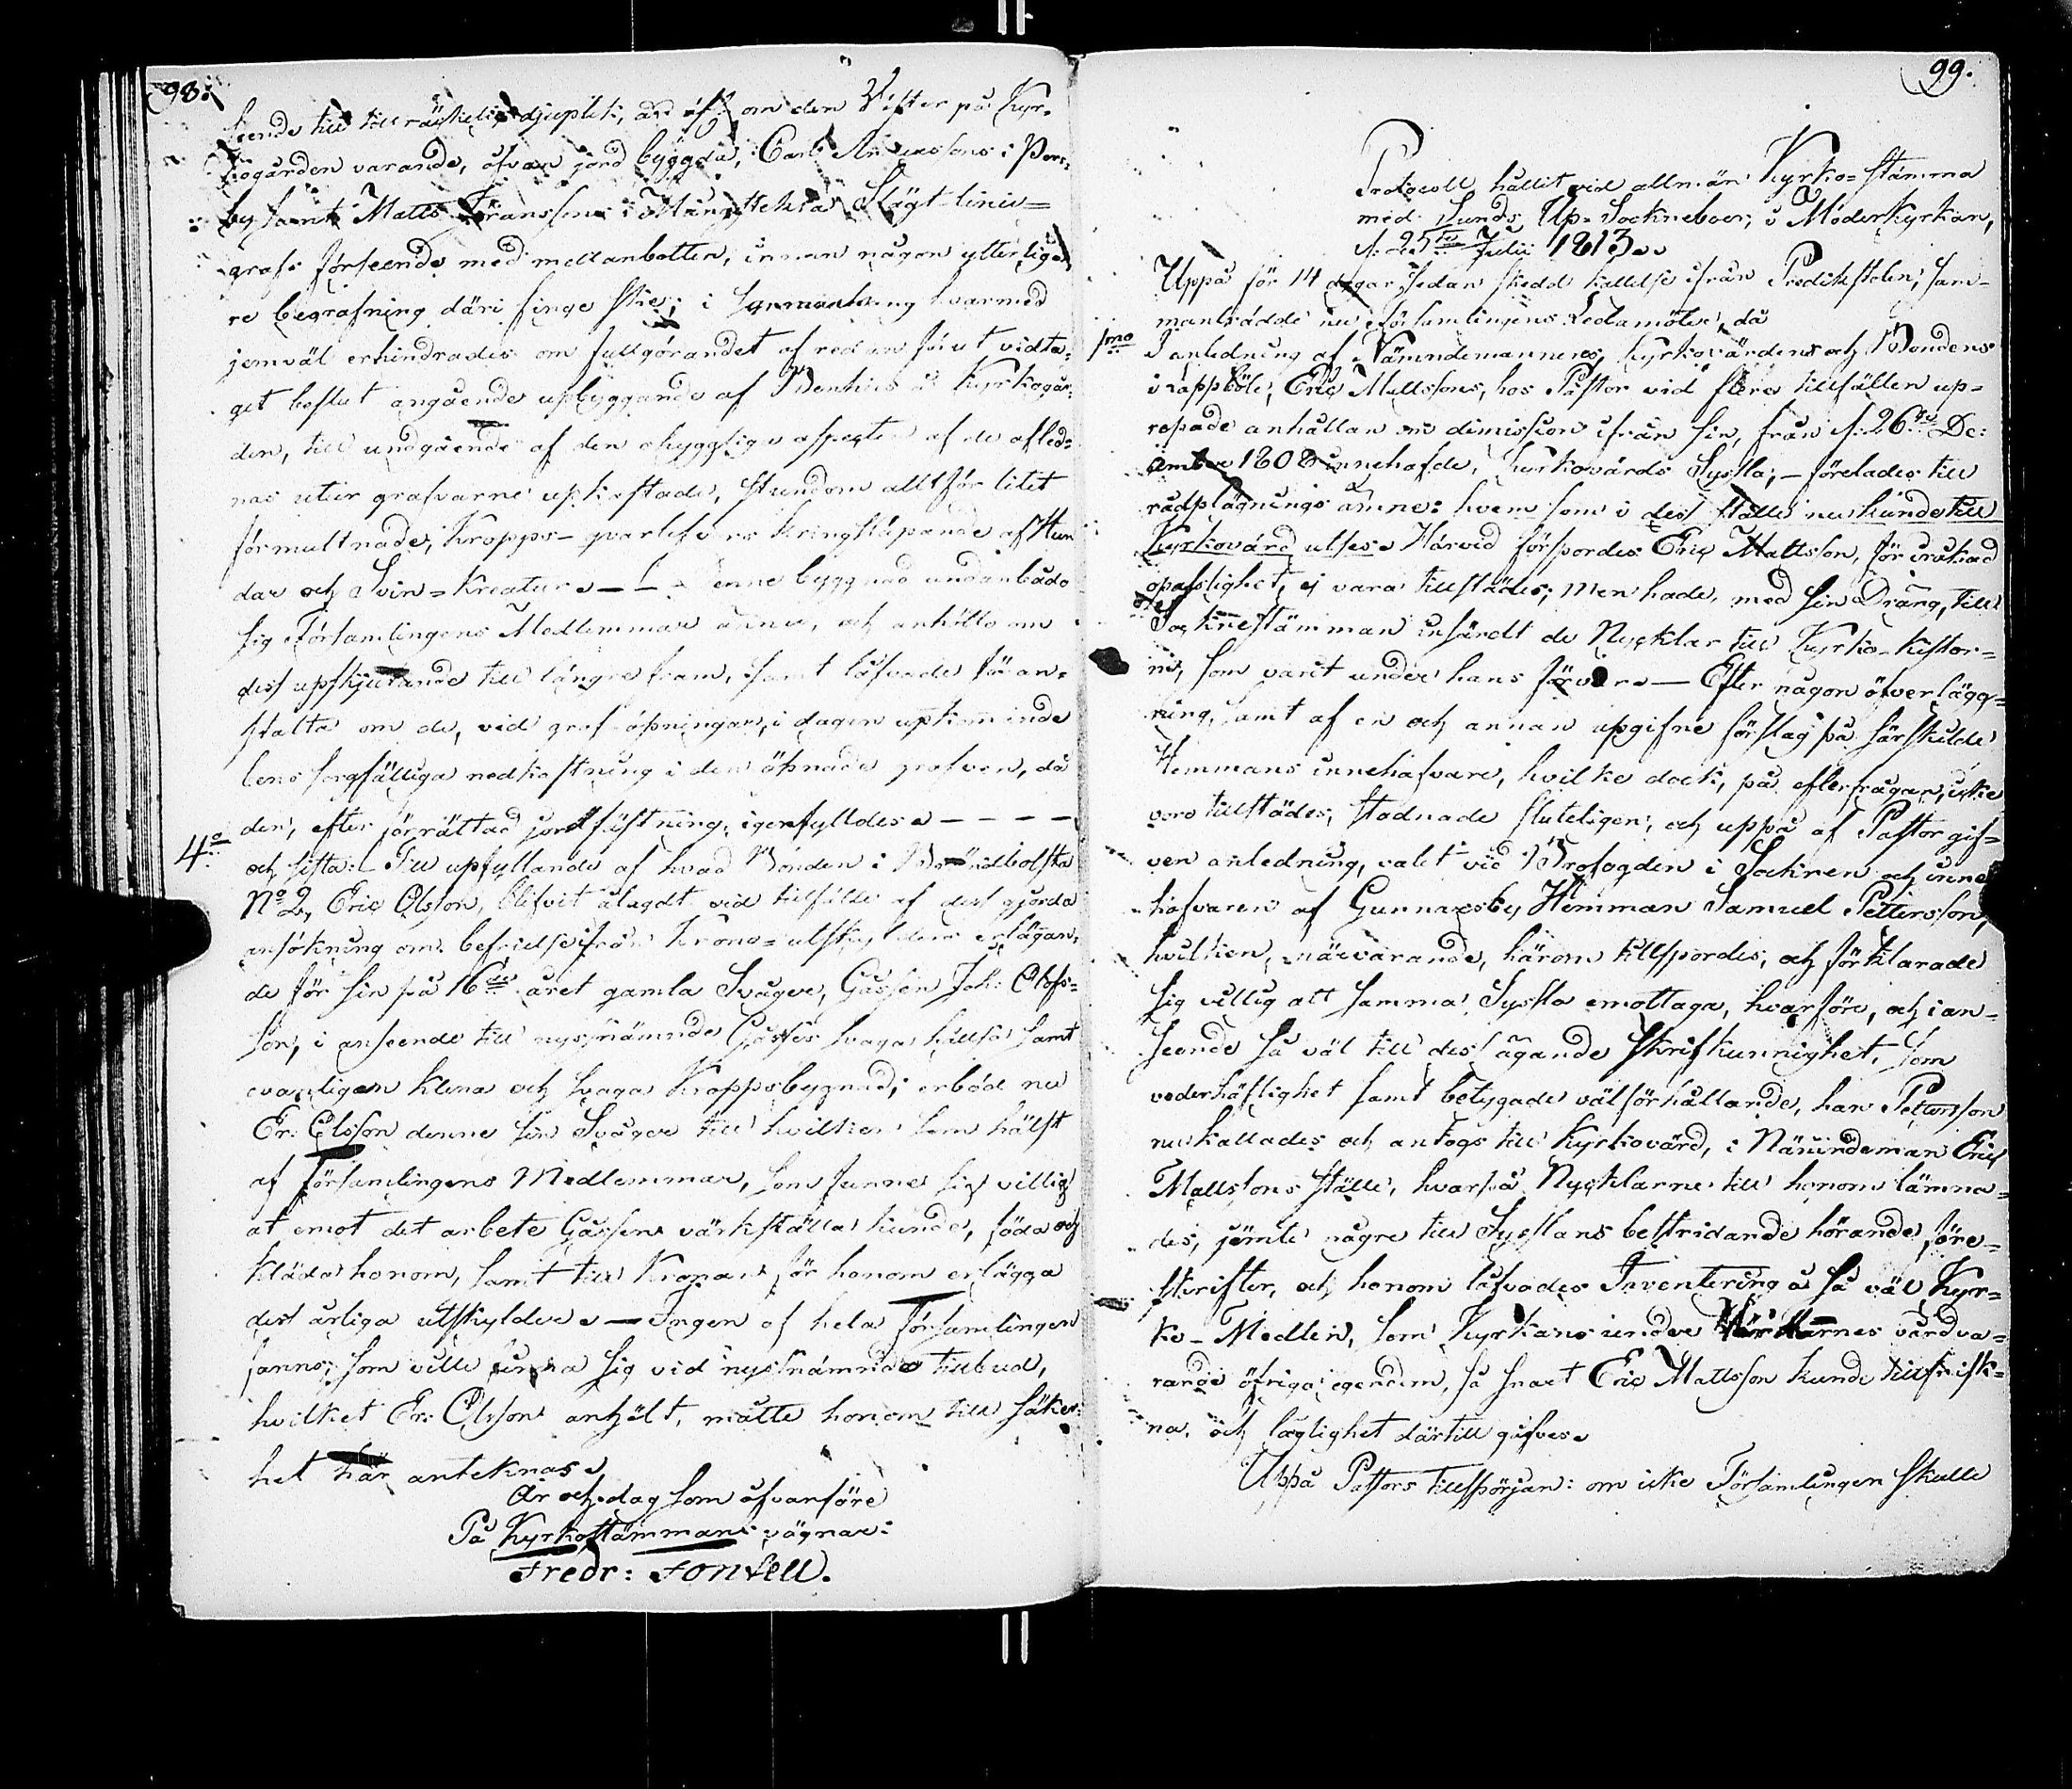 98.
seende till tillräckelig djuplek, än ock om den Väster på Kyr-
kogården varande, ofvan jord byggda, Carl Anderssons i Pers-
by samt Matts Jöranssons i Mångsteckta Slägt linie-
graf: förseende med mellanbotten, innan någon ytterliga-
re begrafning däri finge ske; i sammanhang hvarmed
jemväl erhindrades om fullgörandet af redan förut vidta-
get beslut angående upbyggande af Benhus å Kyrkogår-
den, till undgående af den obyggliga aspecten af de afled-
nas utur grafvarne upkastade, stundom alltför litet
förmultnade, Kropps-qvarlefvors kringsläpande af Hun
dar och Svin-Kreatur. Denne byggnad undanbådo
sig Församlingens Medlemmar ännu, och anhöllo om
dess upskjutande till längre fram, samt låfvade föran-
stalta om de, vid graf-öpningar, i dagen upkommande
bens sorgfälliga nedkastning i den öpnade grafven, då
den, efter förrättad jordfästning, igenfylldes. - - - -
4o
och sista: Till upfyllande af hvad Bonden i Brändbolsta
No 2, Eric Olsson, blifvit ålagdt vid tillfälle af dess gjorda
ansökning om befrielse ifrån Krono-utskylders erläggan-
de för sin på 16de året gamla Svåger, Gossen Joh: Olofs-
son, i anseende till nyssnämnde Gosses svaga hälsa samt
ovanligen klena och svaga Kroppsbygnad; erböd nu
Er: Olsson denne sin Svåger till hvilken som hälst
af Församlingens Medlemmar, som funne sig villig
at emot det arbete Gossen värkställa kunde, föda och
kläda honom, samt till Kronan för honom erlägga
dess årliga utskylder. — Ingen af hela Församlingen
fanns, som ville finna sig vid nyssnämnde tillbud,
hvilket Er: Olsson anhölt, måtte honom till säker-
het här anteknas.
År och dag som ofvanföre
På Kyrkostämmans vägnar:
Fredr: Fonsell.
99.
Protocoll hållit vid allmän Kyrko-stämma
med Sunds Up-Sockneboer, i Moderkyrkan,
d: 25te Julii 1813.
Uppå för 14 dagar sedan skedd kallelse ifrån Predikstolen, sam-
manträdde nu Församlingens Ledamöter, då
1mo
I anledning af Nämndemannens, Kyrkovärdens och Bondens
i Kappböle, Eric Mattssons, hos Pastor vid flera tillfällen up-
repade anhållan om dimission ifrån sin, från d: 26te De-
cember 1808 innehafde, Kyrkovärds Sysla; - förelades till
rådplägnings ämne: hvem som i dess ställe nu kunde till
Kyrkovärd utses. Härvid förspordes Eric Mattsson, för orsakad
opasslighet, ej vara tillstädes; men hade, med sin Dräng, till
Sockne stämman insändt de Nycklar till Kyrko-kistor-
ne, som varit under hans förvar. — Efter någon öfverlägg-
ning, samt af en och annan upgifne förslag på särskilde
Hemmans innehafvare, hvilke dock, på efterfrågan, icke
voro tillstädes, stadnade sluteligen, och uppå af Pastor gif-
ven anledning, valet vid Brofogden i Socknen och inne-
hafvaren af Gunnarsby Hemman Samuel Pettersson,
hvilken, närvarande, härom tillspordes, och förklarade
sig villig att samma Sysla emottaga, hvarföre, och i an-
seende så väl till dess ägande skrifkunnighet, som
vederhäftighet samt betygade välförhållande, han Pettersson
nu kallades och antogs till Kyrkovärd, i Nämndeman Eric
Mattssons ställe, hvarpå Nycklarne till honom lämna-
des, jemte någre till Syslans bestridande hörande före-
skrifter, och honom låfvades Inventering å så väl Kyr-
ko-Medlen, som Kyrkans under Värdarnes vård va-
rande öfriga egendom, så snart Eric Mattsson kunde tillfrisk-
na, och läglighet därtill gifves.
Uppå Pastors tillspörjan: om icke Församlingen skulle